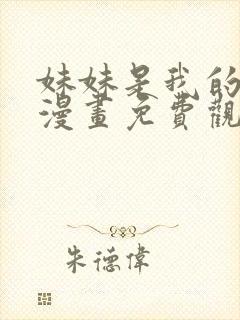 妹妹是我的
漫畫免費觀
朱德偉